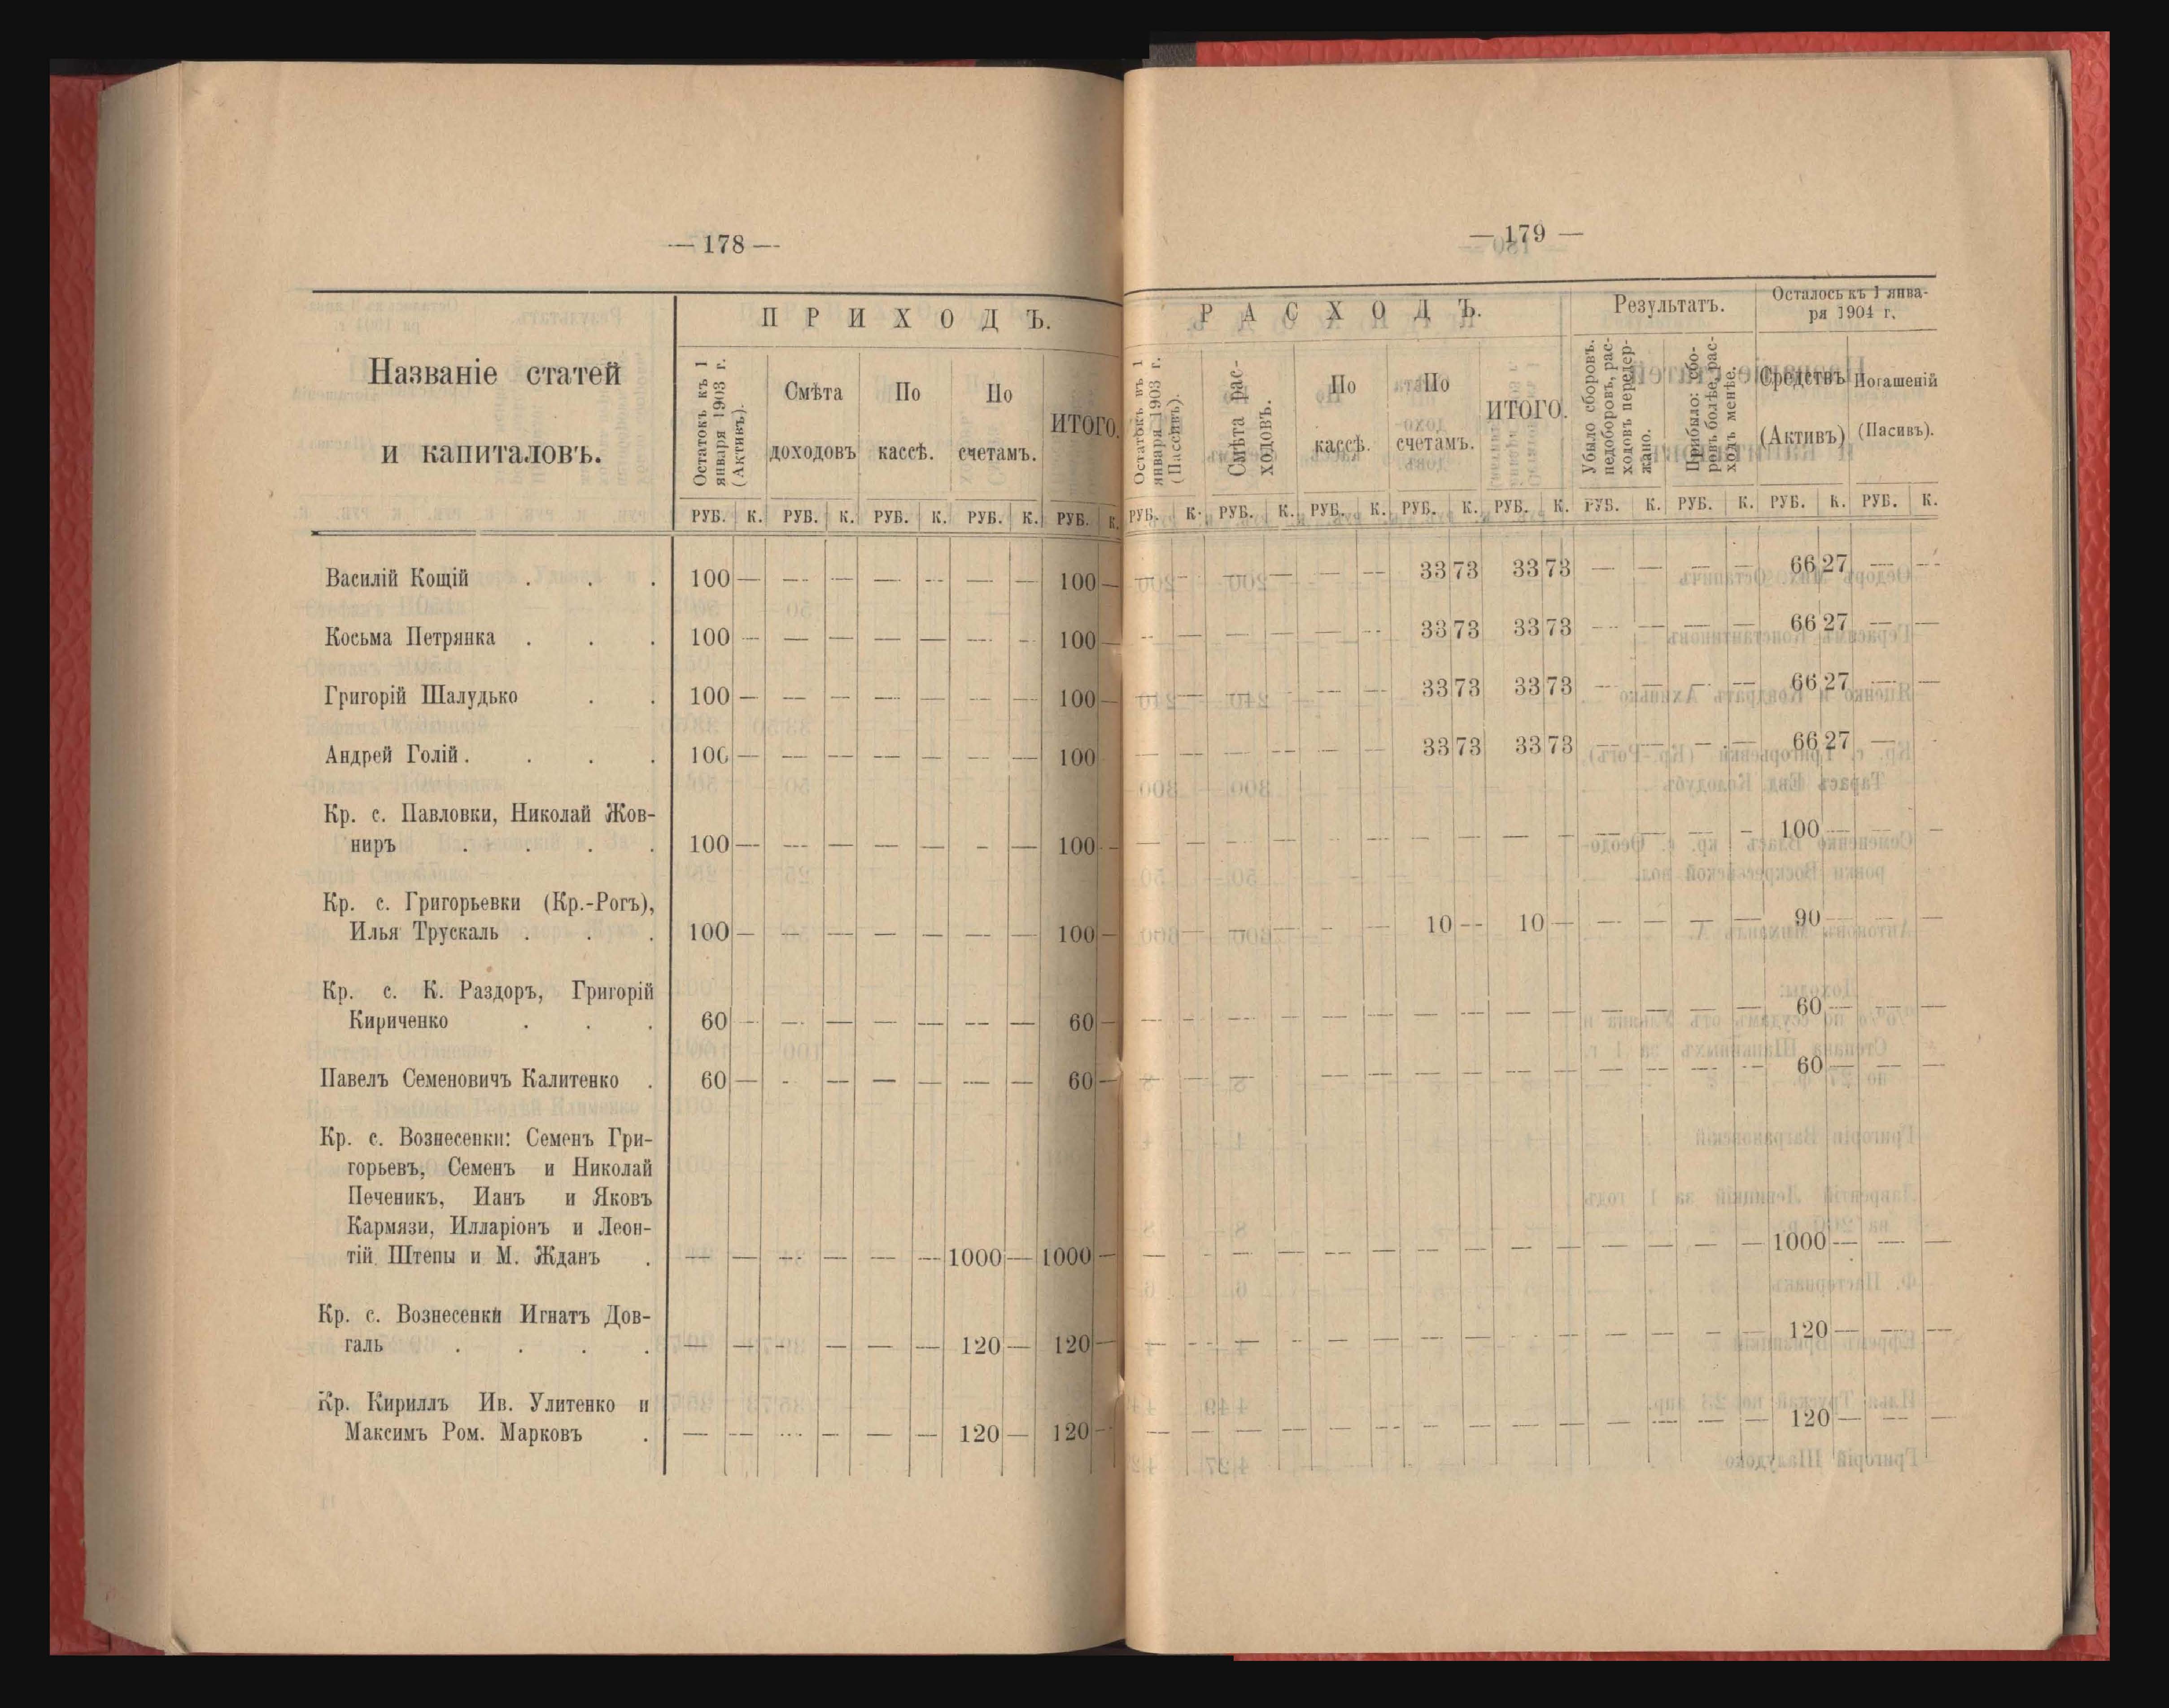 — 178 —
Названіе статей
и капиталовъ.
ПРИХОДЪ.
Остатокъ къ 1
января 1903 г.
(Активъ).
Смѣта
доходовъ
По
кассѣ.
По
счетамъ.
ИТОГО.
РУБ. К. РУБ. К. РУБ. К. РУБ. К. РУБ. К.
Василій Кощій . . . 100 — — — — — — — 100 —
Косьма Петрянка . . . 100 — — — — — — — 100 —
Григорій Шалудько . . 100 — — — — — — — 100 —
Андрей Голій . . . . 100 — — — — — — — 100
Кр. с. Павловки, Николай Жов-
ниръ . . . . 100 — — — — — — — 100 —
Кр. с. Григорьевки (Кр.-Рогъ),
Илья Трускаль . . . 100 — — — — — — 100 —
Кр. с. К. Раздоръ, Григорій
Кириченко . . . 60 — — — — — — — 60 —
Павелъ Семеновичъ Калитенко . 60 — - — — — — — 60 —
Кр. с. Вознесенки: Семенъ Гри-
горьевъ, Семенъ и Николай
Печеникъ, Ианъ и Яковъ
Кармязи, Илларіонъ и Леон-
тій Штепы и М. Жданъ . — — — — — — 1000 — 1000 —
Кр. с. Вознесенки Игнатъ Дов-
галь . . . . — — — — — — 120 — 120 —
Кр. Кириллъ Ив. Улитенко и
Максимъ Ром. Марковъ . — — — — — — 120 — 120 —
— 179 —
РАСХОДЪ.
Результатъ.
Осталось къ 1 янва-
ря 1904 г.
Остатокъ въ 1
января 1903 г.
(Пассивъ).
Смѣта рас-
ходовъ.
По
кассѣ.
По
счетамъ.
ИТОГО.
Убыло сборовъ.
недоборовъ, рас-
ходовъ передер-
жано.
Прибыло: сбо-
ровъ болѣе, рас-
ходъ менѣе.
Средствъ
(Активъ)
Погашеній
(Пасивъ).
РУБ. К. РУБ. К. РУБ. К. РУБ. К. РУБ. К. РУБ. К. РУБ. К. РУБ. К. РУБ. К.
— — — — — — 33 73 33 73 — — — — 66 27 — —
— — — — — — 33 73 33 73 — — — — 66 27 — —
— — — — 33 73 33 73 — — — — 66 27 — —
— — — — — — 33 73 33 73 — — — — 66 27 —
— — — — — — — — — — — — — — 100 — — —
— — — — — 10 — 10 — — — — — 90 — — —
— — — — — — — — — — — — — — 60 — — —
— — — — — — — — — — — — — 60 — — —
— — — — — — — — — — — — — — 1000 — — —
— — — — — — — — — — — — — — 120 — — —
— — — — — — — — — — — — — — 120 — — —